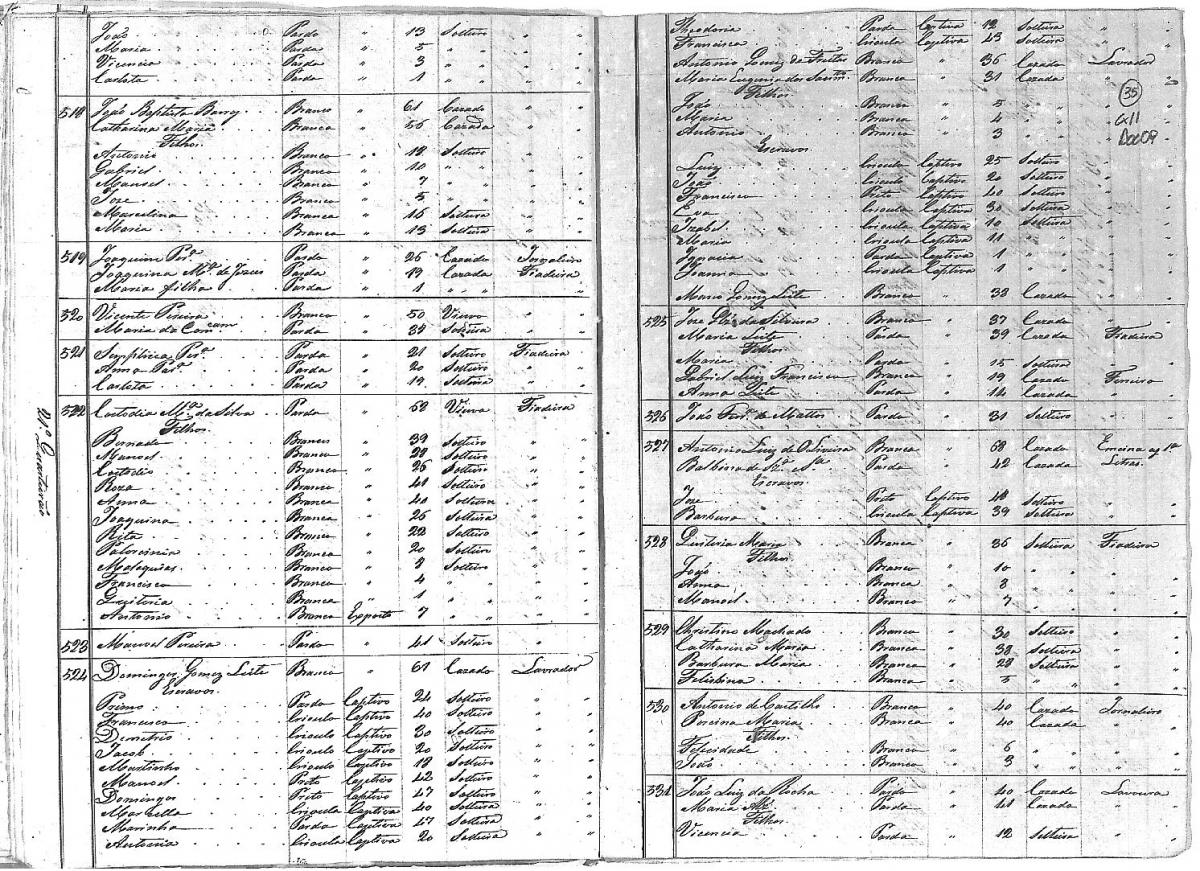 João Pardo " 13 Solteiro " "
Maria Parda " 5 " " "
Vicencia Parda " 3 " " "
Carlota Parda " 1 " " "
518 João Baptista Barry Branco " 61 Cazado " "
Catharina Maria Branca " 56 Cazada " "
Filhos
Antonio Branco " 18 Solteiro " "
Gabriel Branco " 10 " " "
Manoel Branco " 7 " " "
Joze Branco " 5 " " "
Marcelina Branca " 15 Solteira " "
Maria Branca " 13 Solteira " "
519 Joaquim Per.ª Pardo " 26 Cazado Jornaleiro
Joaquina M.ª de Jezus Parda " 19 Cazada Fiadeira
Maria filha Parda " 1 " " "
520 Vicente Pereira Branco " 50 Viuvo "
Maria da Parda " 38 Solteira "
521 Pr.ª Parda " 21 Solteiro Fiadeira
Anna Parda " 20 Solteiro "
Carlota Parda " 19 Solteira "
522 Custodia M.ª da Silva Parda " 68 Viuva Fiadeira
Filhos
Bernardo Branco " 39 Solteiro " "
Manoel Branco " 28 Solteiro " "
Custodio Branco " 26 Solteiro " "
Roza Branca " 41 Solteira " "
Anna Branca " 40 Solteira " "
Joaquina Branca " 26 Solteira " "
Rita Branca " 22 Solteira " "
Branca " 20 Solteira " "
Branco " 9 Solteiro " "
Francisca Branca " 4 " " "
Branca " 1 " " "
Antonio Branco Exposto 7 " " "
523 Manoel Pereira Pardo " 41 Solteiro "
524 Domingos Gomez Leite Branco " 61 Cazado Lavrador
Escravos
Primo Pardo Captivo 24 Solteiro "
Francisco Crioulo Captivo 40 Solteiro "
Demetrio Crioulo Captivo 30 Solteiro "
Jacob Crioulo Captivo 20 Solteiro "
Martinho Crioulo Captivo 18 Solteiro "
Manoel Preto Captivo 42 Solteiro "
Domingos Preto Captivo 47 Solteiro "
Marcella Crioula Captiva 40 Solteira "
Marinha Parda Captiva 47 Solteira "
Antonia Crioula Captiva 20 Solteira "
21º Quarteirão
Theodoria Parda Captiva 12 Solteira
Francisca Crioula Captiva 43 Solteira
Antonio Gomez de Freitas Branco " 36 Cazado Lavrador
Maria Eugenia dos Branca " 31 Cazada "
Filhos
João Branco " 5 " "
Maria Branca " 4 " "
Antonio Branco " 3 " "
35
Cx11
Doc09
Escravos
Luiz Crioulo Captivo 25 Solteiro
João Crioulo Captivo 20 Solteiro
Francisco Preto Captivo 40 Solteiro
Eva Crioula Captiva 30 Solteira
Izabel Crioula Captiva 10 Solteira
Maria Crioula Captiva 11 " "
Ignacia Parda Captiva 1 " "
Joanna Crioula Captiva 1 " "
Maria Gomez Leite Branca " 38 Cazada "
525 Joze da Silveira Branco " 37 Cazado "
Maria Leite Parda " 39 Cazada Fiadeira
Filhos
Maria Parda " 15 Solteira "
Gabriel Luiz Francisco Branco " 19 Cazado Ferreiro
Anna Leite Parda " 14 Cazada "
526 João de Mattos Pardo " 31 Solteiro "
527 Antonio Luiz de Oliveira Branco " 68 Cazado Emcina as 1.as
Balbina de Parda " 42 Cazada Letras.
Escravos
Joze Preto Captivo 48 Solteiro "
Barbara Crioula Captiva 39 Solteira "
528 Quiteria Maria Branca " 36 Solteira Fiadeira
Filhos
João Branco " 10 " "
Anna Branca " 8 " "
Manoel Branco " 7 " "
529 Christino Machado Branco " 30 Solteiro "
Catharina Maria Branca " 38 Solteira "
Barbara Maria Branca " 28 Solteira "
Felisbina Branca " 5 " "
530 Antonio de Castilho Branco " 40 Cazado Jornaleiro
Porcina Maria Branca " 40 Cazada "
Filhos
Felicidade Branca " 6 " "
João Branco " 3 " "
531 João Luiz da Rocha Pardo " 40 Cazado Lavoura
Maria Parda " 41 Cazada "
Filhos
Vicencia Parda " 12 Solteira "